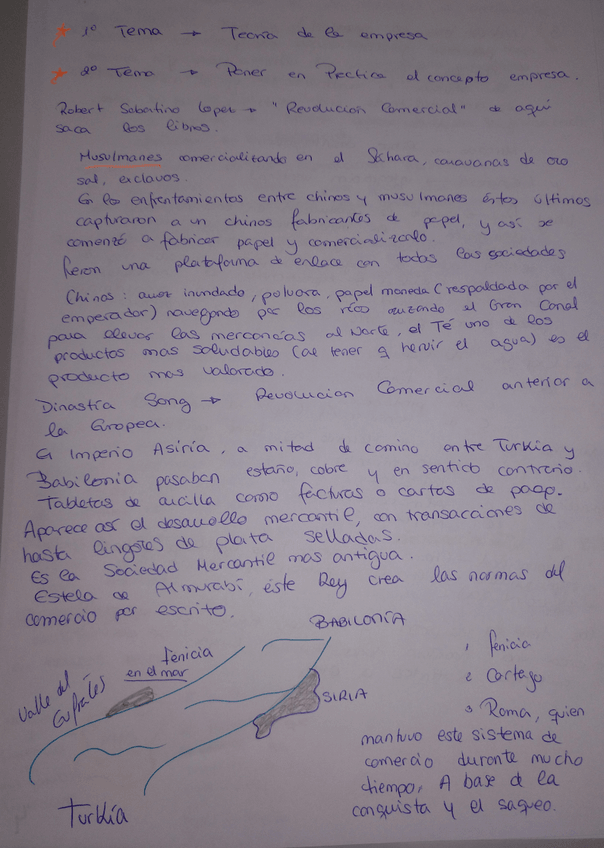 * 1º Tema → Teoría de la empresa
* 2º Tema → Poner en Practica el concepto empresa.
Robert Sabatino Lopez → "Revolucion Comercial" de aqui
saca los libros.
Musulmanes comercializando en el Sáhara, caravanas de oro
sal, esclavos.
En los enfrentamientos entre chinos y musulmanes éstos últimos
capturaron a un chinos fabricantes de papel, y así se
comenzó a fabricar papel y comercializarlo.
fueron una plataforma de enlace con todas las sociedades
Chinos: arroz inundado, polvora, papel moneda (respaldada por el
emperador) navegando por los ríos cruzando el Gran Canal
para llevar las mercancías al Norte, el Té uno de los
productos mas saludables (al tener q hervir el agua) es el
producto mas valorado.
Dinastía Song → Revolucion Comercial anterior a
la Europea.
El Imperio Asiría, a mitad de camino entre Turkia y
Babilonia pasaban estaño, cobre y en sentido contrario.
Tabletas de arcilla como facturas o cartas de pago.
Aparece así el desarrollo mercantil, con transacciones de
hasta lingotes de plata selladas.
Es la Sociedad Mercantil mas antigua.
Estela de Almurabí, éste Rey crea las normas del
comercio por escrito.
BABILONIA
fenicia
en el mar
Valle del
Eufrates
SIRIA
Turkía
1 fenicia
2 Cartago
3 Roma, quien
mantuvo este sistema de
comercio durante mucho
tiempo, A base de la
conquista y el saqueo.